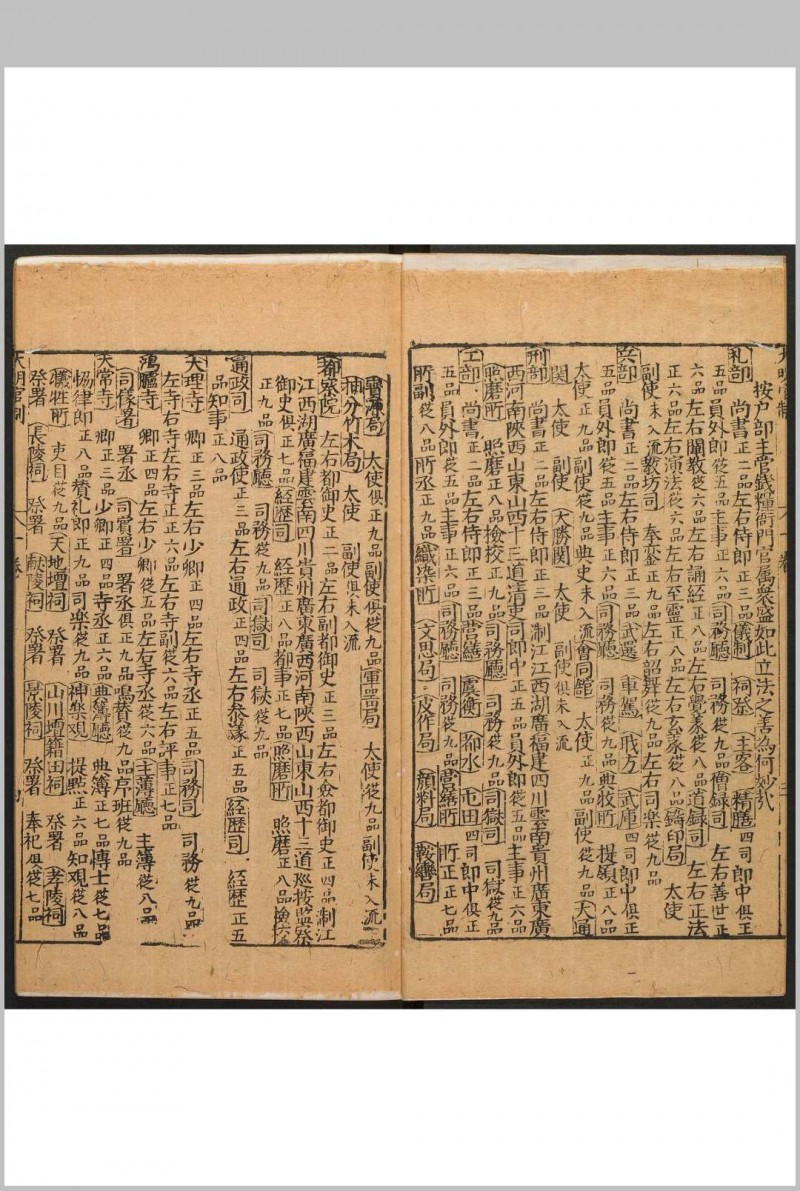 按户部主官錢糧衙門官属衆盛如此立法之善為何妙哉
礼部 尚書正二品左右侍郎正三品儀制 祠祭 主客 精膳四司郎中俱正
五品員外郎從五品主事正六品司務廳 司務從九品僧録司 左右善世正
六品左右闡教從六品左右誦經正八品左右覺義從八品道録司 左右正法
正六品左右演法從六品左右至靈正八品左右玄義從八品鑄印局 太使
副使未入流教坊司 奉鑾正九品左右韶舞從九品左右司樂從九品
兵部 尚書正二品左右侍郎正三品武選 車駕 職方 武庫四司郎中俱正
五品員外郎從五品主事正六品司務廳 司務從九品典牧所 提領正八品
太使正九品副使從九品典史未入流會同館 太使正九品副使從九品大通
関 太使 副使 大勝関 太使 副使俱未入流
刑部 尚書正二品左右侍郎正三品浙江江西湖廣福建四川雲南貴州廣東廣
西河南陝西山東山西十三道清吏司郎中正五品員外郎從五品主事正六品
照磨所 照磨正八品檢校正九品司務廳 司務從九品司獄司 司獄從九品
工部 尚書正二品左右侍郎正三品營繕 虞衡 都水 屯田四司郎中正
五品員外郎從五品主事正六品司務廳 司務從九品營繕所 所正正七品
所副從八品所丞正九品織染所 文思局 皮作局 顔料局 鞍轡局
寶源局 太使俱正九品副使俱從九品軍器局 太使從九品副使未入流
抽分竹木局 太使 副使俱未入流
都察院 左右都御史正二品左右副都御史正三品左右僉都御史正四品浙江
江西湖廣福建雲南四川貴州廣東廣西河南陝西山東山西十三道廵按監察
御史俱正七品經歴司 經歴正八品都事正七品照磨所 照磨正八品檢
正九品司務廳 司務從九品司獄司 司獄從九品
通政司 通政使正三品左右通政正四品左右叅議正五品經歴司 經歴正五
品知事正八品
大理寺 卿正三品左右少卿正四品左右寺丞正五品司務司 司務從九品
左寺右寺左右寺正正六品左右寺副從六品左右評事正七品
鴻臚寺 卿正四品左右少卿從五品左右寺丞從六品主薄廳 主薄從八品
司儀署 署丞 司賓署 署丞俱正九品鳴賛從九品序班從九品
太常寺 卿正三品少卿正四品寺丞正六品典薄廳 典簿正七品博士從七品
恊律郎正八品賛礼郎正九品司樂從九品神樂观 提㸃正六品知观從八品
犠牲所 吏目從九品天地壇祠 祭署 山川壇籍田祠 祭署 孝陵祠
祭署 長陵祠 祭署 献陵祠 祭署 景陵祠 祭署 奉祀俱從七品
大明官制 一卷